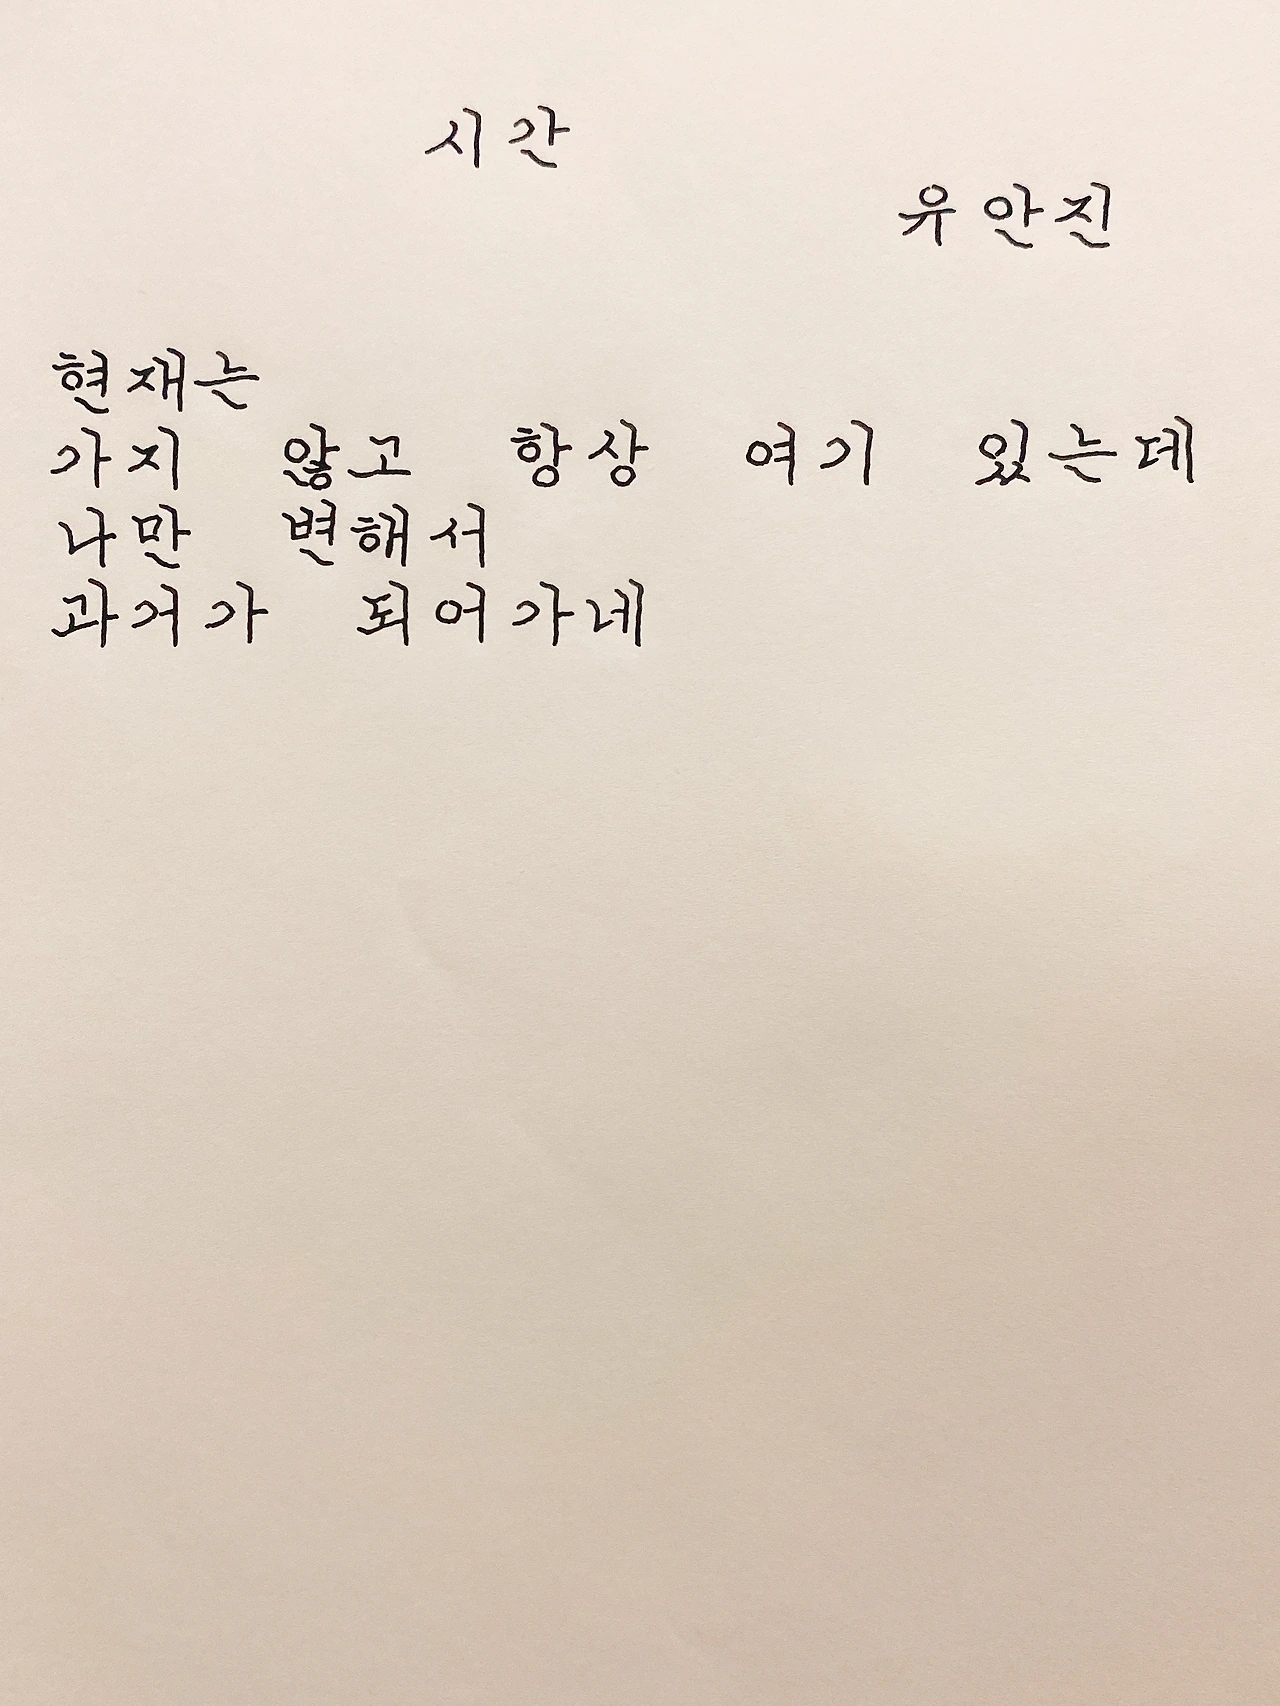 시간
유안진
현재는
가지 않고 항상 여기 있는데
나만 변해서
과거가 되어가네